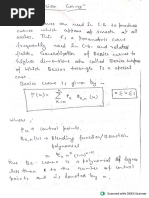 "Bezier Curve"
are used in C.G. to produce
curve which appear of smooth at all
scales. This is a parametric curve
frequently used in C.G. and related
fields. Generalization of Bezier curve to
higher dimensions are called Bezier
of which Bezier triangle is a special
case.
Bezier curve is given by -
P(u) = Σ Pk Bk,n(u)
K=0
where,
Pk = Control points,
Bk,n(u) = Blending function/Bernstein
Polynomial.
The Be curve is a polynomial of degree
less than 1 to the number of control
points and is denoted by n.
Scanned with OKEN Scanner